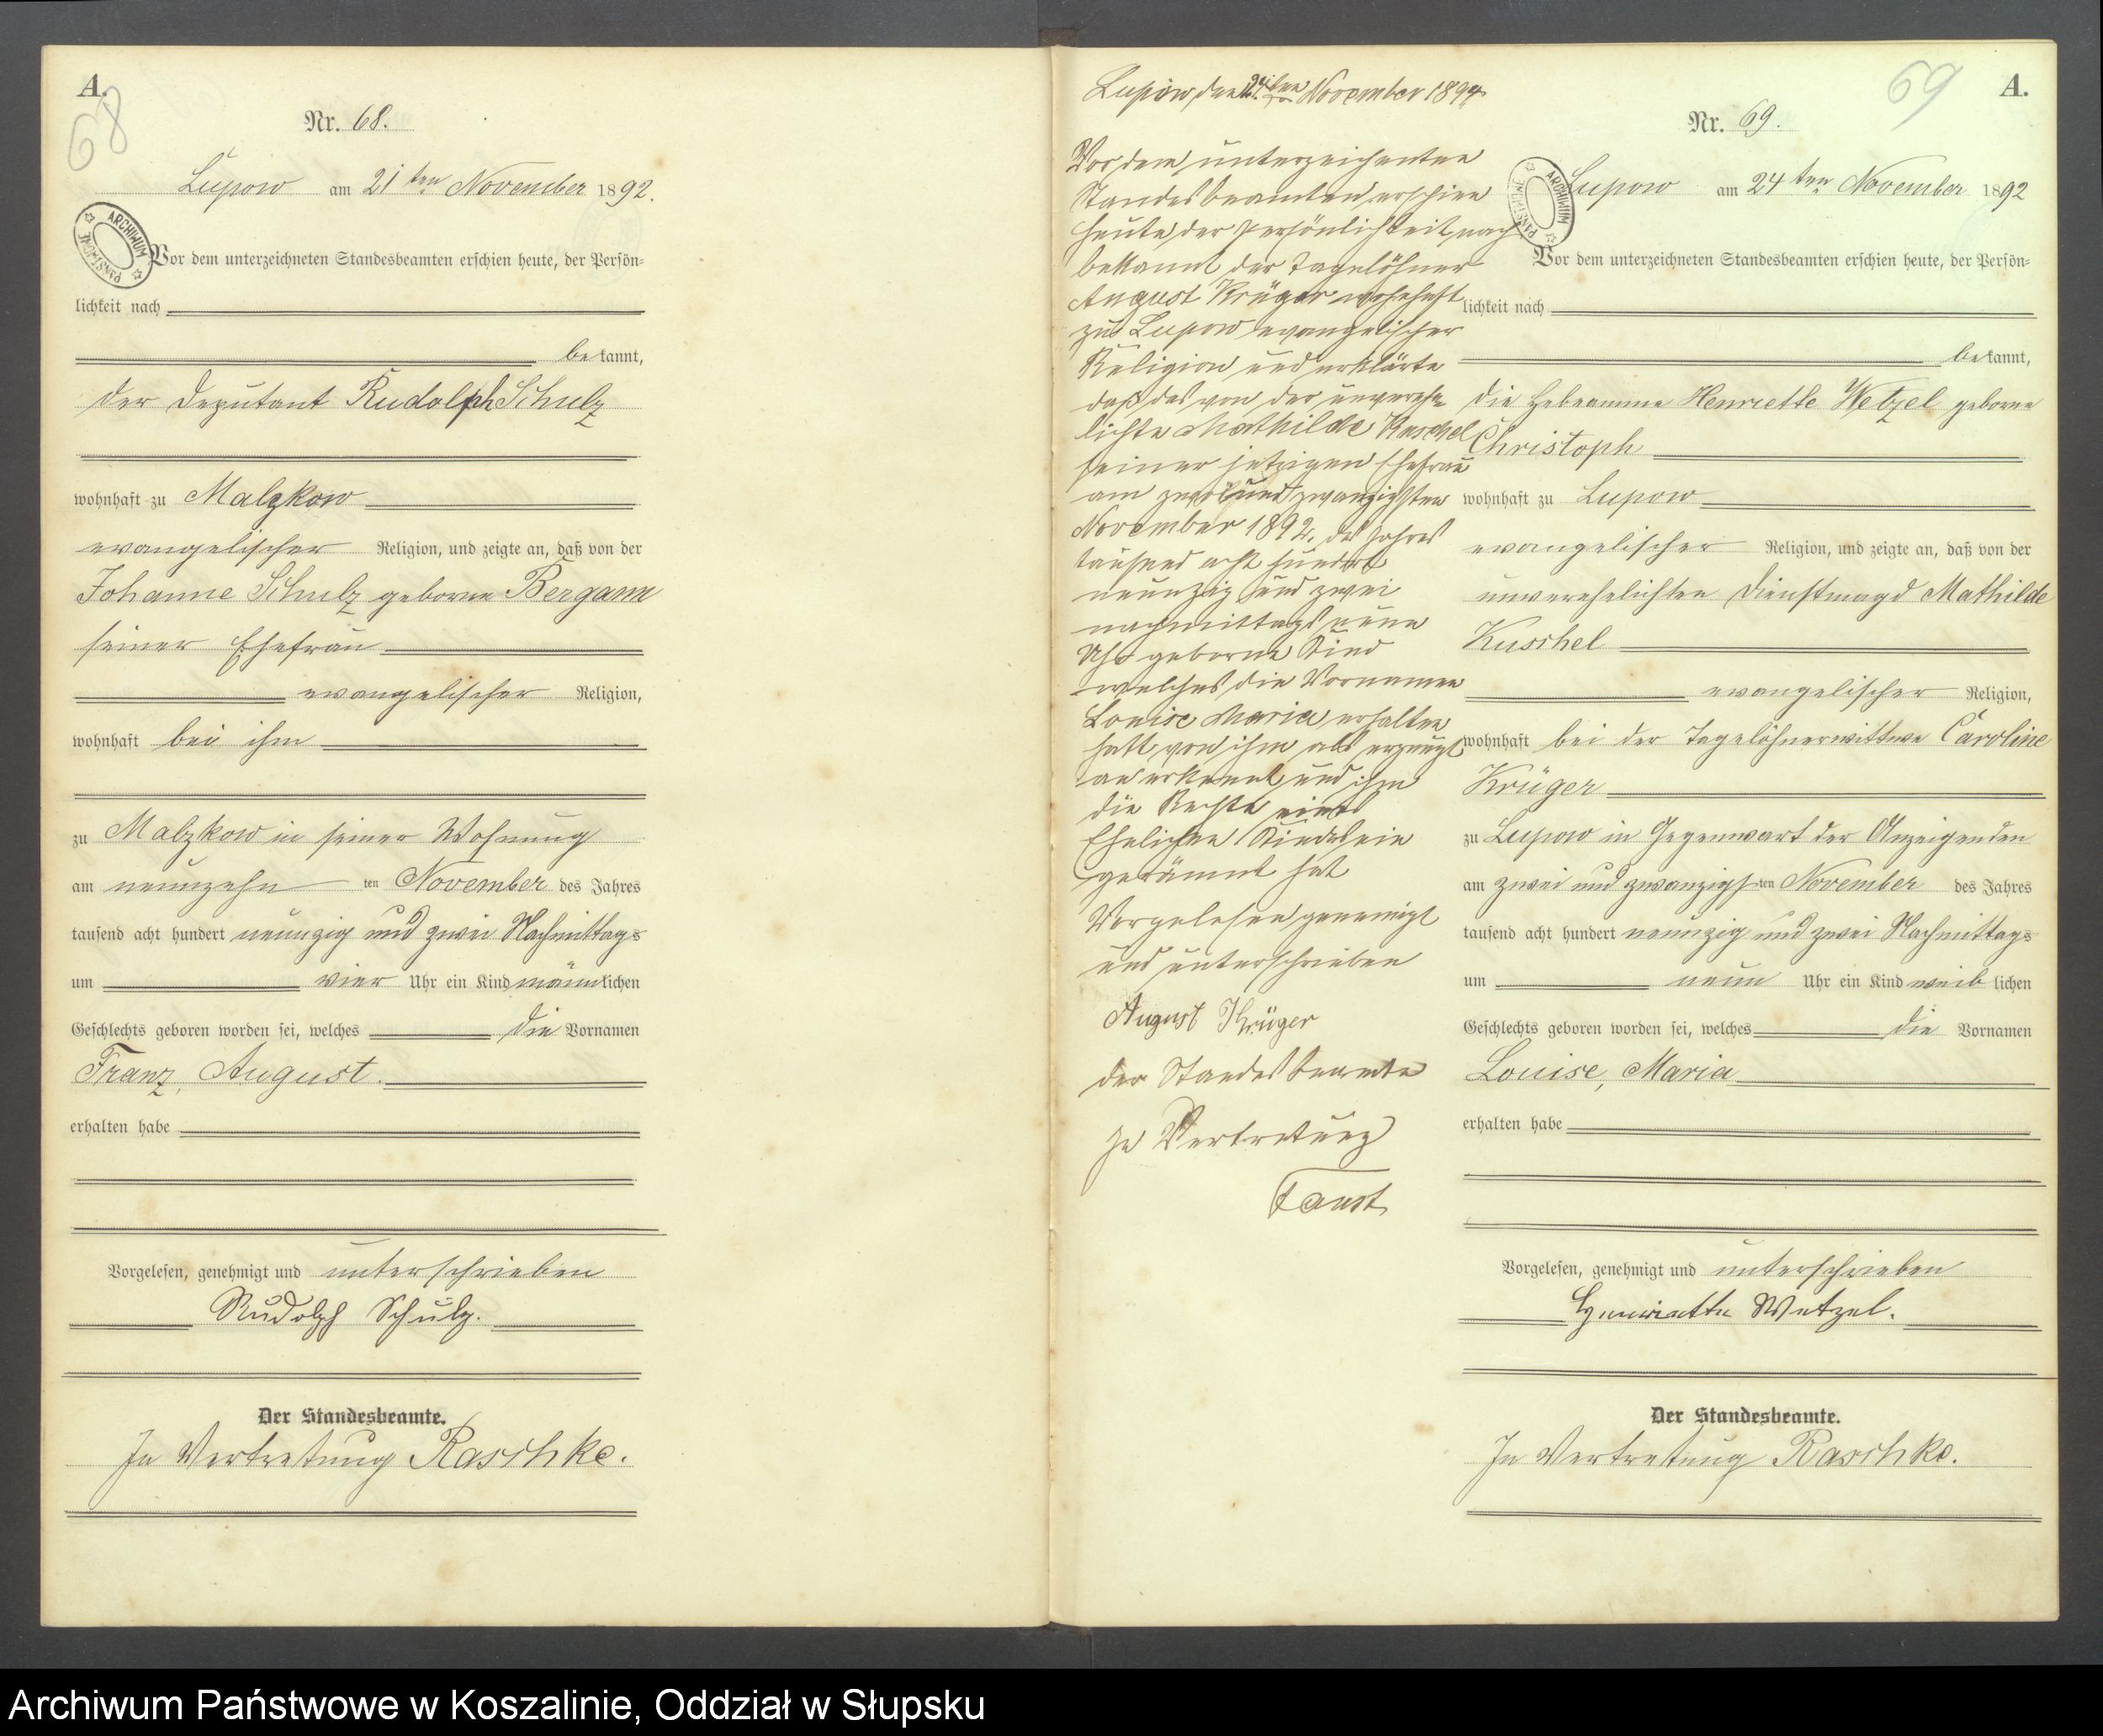 A.
68
Nr. 68.
Lupow am 21ten November 1892.
ARCHIWUM PAŃSTWOWE
Vor dem unterzeichneten Standesbeamten erschien heute, der Persön=
lichkeit nach
bekannt,
der Deputant Rudolph Schulz
wohnhaft zu Malzkow
evangelischer Religion, und zeigte an, daß von der
Johanne Schulz geborne Bergann
seiner Ehefrau
evangelischer Religion,
wohnhaft bei ihm
zu Malzkow in seiner Wohnung
am neunzehn ten November des Jahres
tausend acht hundert neunzig und zwei Nachmittags
um vier Uhr ein Kind männlichen
Geschlechts geboren worden sei, welches die Vornamen
Franz, August.
erhalten habe
Vorgelesen, genehmigt und unterschrieben
Rudolph Schulz.
Der Standesbeamte.
In Vertretung Raschke.
Lupow, den 24ten November 1894
Vor dem unterzeichenten
Standesbeamten erschien
heute der Persönlichkeit nach
bekannt der Tagelöhner
August Krüger wohnhaft
zu Lupow evangelischer
Religion und erklärte
daß das von der unverehe
lichte Mathilde Kuschel
seiner jetzigen Ehefrau
am zwei und zwanzigsten
November 1892. des Jahres
tausend acht hundert
neunzig und zwei
nachmittags neun
Uhr geborne Kind
welches die Vornamen
Louise Maria erhalten
hatt von ihm als erzeugt
an erkennt und ihm
die Rechte eines
Ehelichen Kindes ein
geräumt hat
Vorgelesen genemigt
und unterschrieben
August Krüger
der Standesbeamte
In Vertretung
Faust
69
A.
Nr. 69.
Lupow am 24ten November 1892
ARCHIWUM PAŃSTWOWE
Vor dem unterzeichneten Standesbeamten erschien heute, der Persön=
lichkeit nach
bekannt,
die Hebeamme Henriette Wetzel geborne
Christoph
wohnhaft zu Lupow
evangelischer Religion, und zeigte an, daß von der
unverehelichten Dienstmagd Mathilde
Kuschel
evangelischer Religion,
wohnhaft bei der Tagelöhnerwittwe Caroline
Krüger
zu Lupow in Gegenwart der Anzeigenden
am zwei und zwanzigsten November des Jahres
tausend acht hundert neunzig und zwei Nachmittags
um neun Uhr ein Kind weiblichen
Geschlechts geboren worden sei, welches die Vornamen
Louise, Maria
erhalten habe
Vorgelesen, genehmigt und unterschrieben
Henriette Wetzel.
Der Standesbeamte.
In Vertretung Raschke.
Archiwum Państwowe w Koszalinie, Oddział w Słupsku